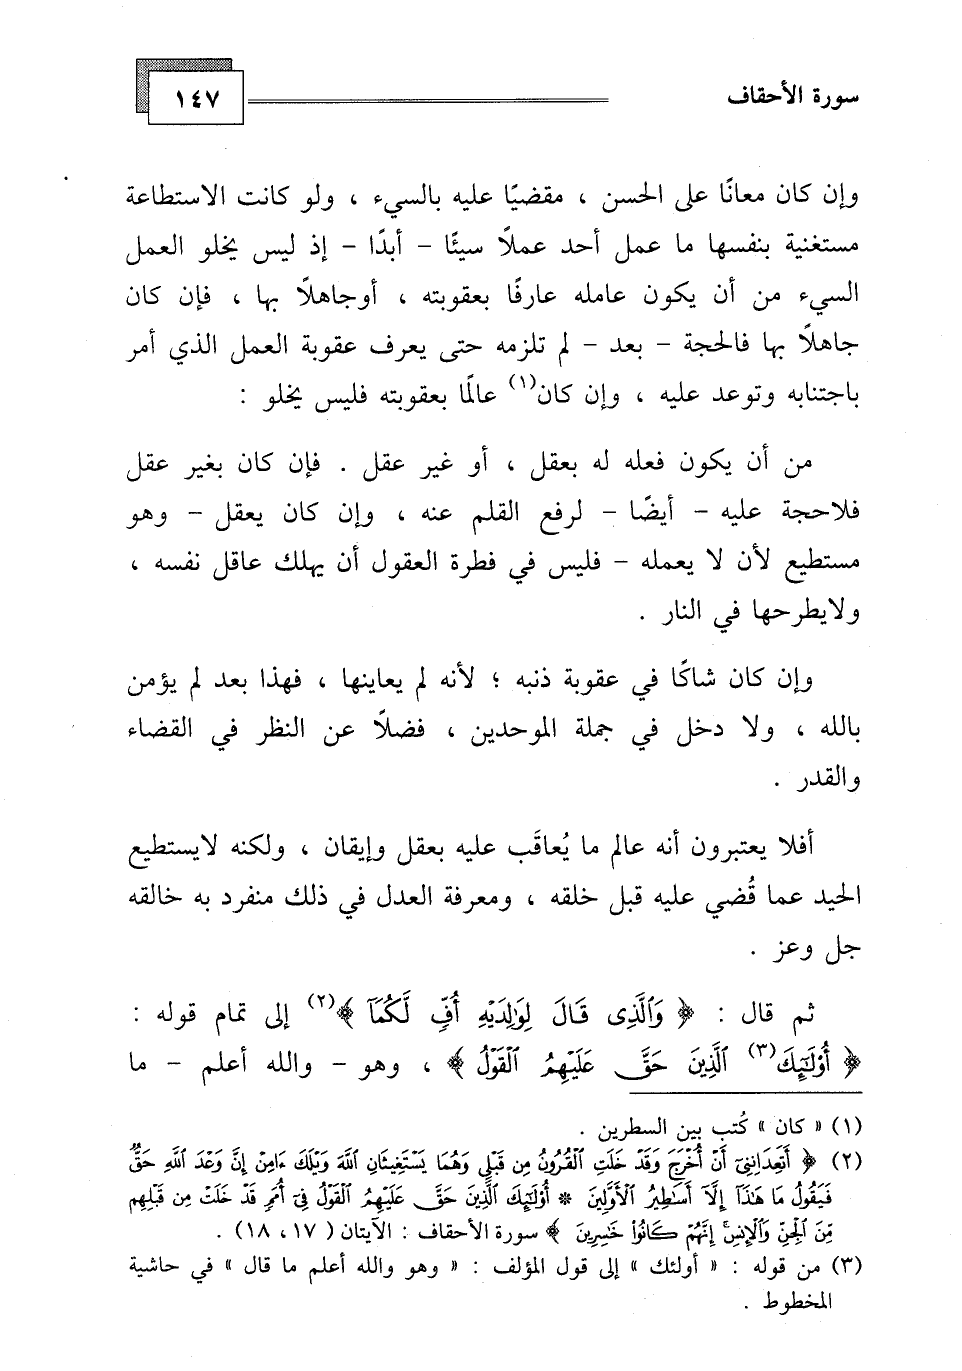 سورة الأحقاف
١٤٧
وإن كان معانًا على الحسن ، مقضيًا عليه بالسيء ، ولو كانت الاستطاعة
مستغنية بنفسها ما عمل أحد عملاً سيئًا - أبدًا - إذ ليس يخلو العمل
السيء من أن يكون عامله عارفًا بعقوبته ، أوجاهلًا بها ، فإن كان
جاهلاً بها فالحجة - بعد - لم تلزمه حتى يعرف عقوبة العمل الذي أمر
باجتنابه وتوعد عليه ، وإن كان(١) عالمًا بعقوبته فليس يخلو :
من أن يكون فعله له بعقل ، أو غير عقل . فإن كان بغير عقل
فلاحجة عليه - أيضًا - لرفع القلم عنه ، وإن كان يعقل - وهو
مستطيع لأن لا يعمله - فليس في فطرة العقول أن يهلك عاقل نفسه ،
ولايطرحها في النار .
وإن كان شاكًا في عقوبة ذنبه ؛ لأنه لم يعاينها ، فهذا بعد لم يؤمن
بالله ، ولا دخل في جملة الموحدين ، فضلاً عن النظر في القضاء
والقدر .
أفلا يعتبرون أنه عالم ما يُعاقَب عليه بعقل وإيقان ، ولكنه لايستطيع
الحيد عما قُضي عليه قبل خلقه ، ومعرفة العدل في ذلك منفرد به خالقه
جل وعز .
ثم قال : ﴿ وَٱلَّذِى قَالَ لِوَٰلِدَيْهِ أُفٍّ لَّكُمَآ ﴾(٢) إلى تمام قوله :
﴿ أُوْلَٰٓئِكَ(٣) ٱلَّذِينَ حَقَّ عَلَيْهِمُ ٱلْقَوْلُ ﴾ ، وهو - والله أعلم - ما
(١) « كان » كُتب بين السطرين .
(٢) ﴿ أَتَعِدَانِنِىٓ أَنْ أُخْرَجَ وَقَدْ خَلَتِ ٱلْقُرُونُ مِن قَبْلِى وَهُمَا يَسْتَغِيثَانِ ٱللَّهَ وَيْلَكَ ءَامِنْ إِنَّ وَعْدَ ٱللَّهِ حَقٌّ
فَيَقُولُ مَا هَٰذَآ إِلَّآ أَسَٰطِيرُ ٱلْأَوَّلِينَ * أُوْلَٰٓئِكَ ٱلَّذِينَ حَقَّ عَلَيْهِمُ ٱلْقَوْلُ فِىٓ أُمَمٍ قَدْ خَلَتْ مِن قَبْلِهِم
مِّنَ ٱلْجِنِّ وَٱلْإِنسِ إِنَّهُمْ كَانُواْ خَٰسِرِينَ ﴾ سورة الأحقاف : الآيتان (١٧، ١٨) .
(٣) من قوله : « أولئك » إلى قول المؤلف : « وهو والله أعلم ما قال » في حاشية
المخطوط .